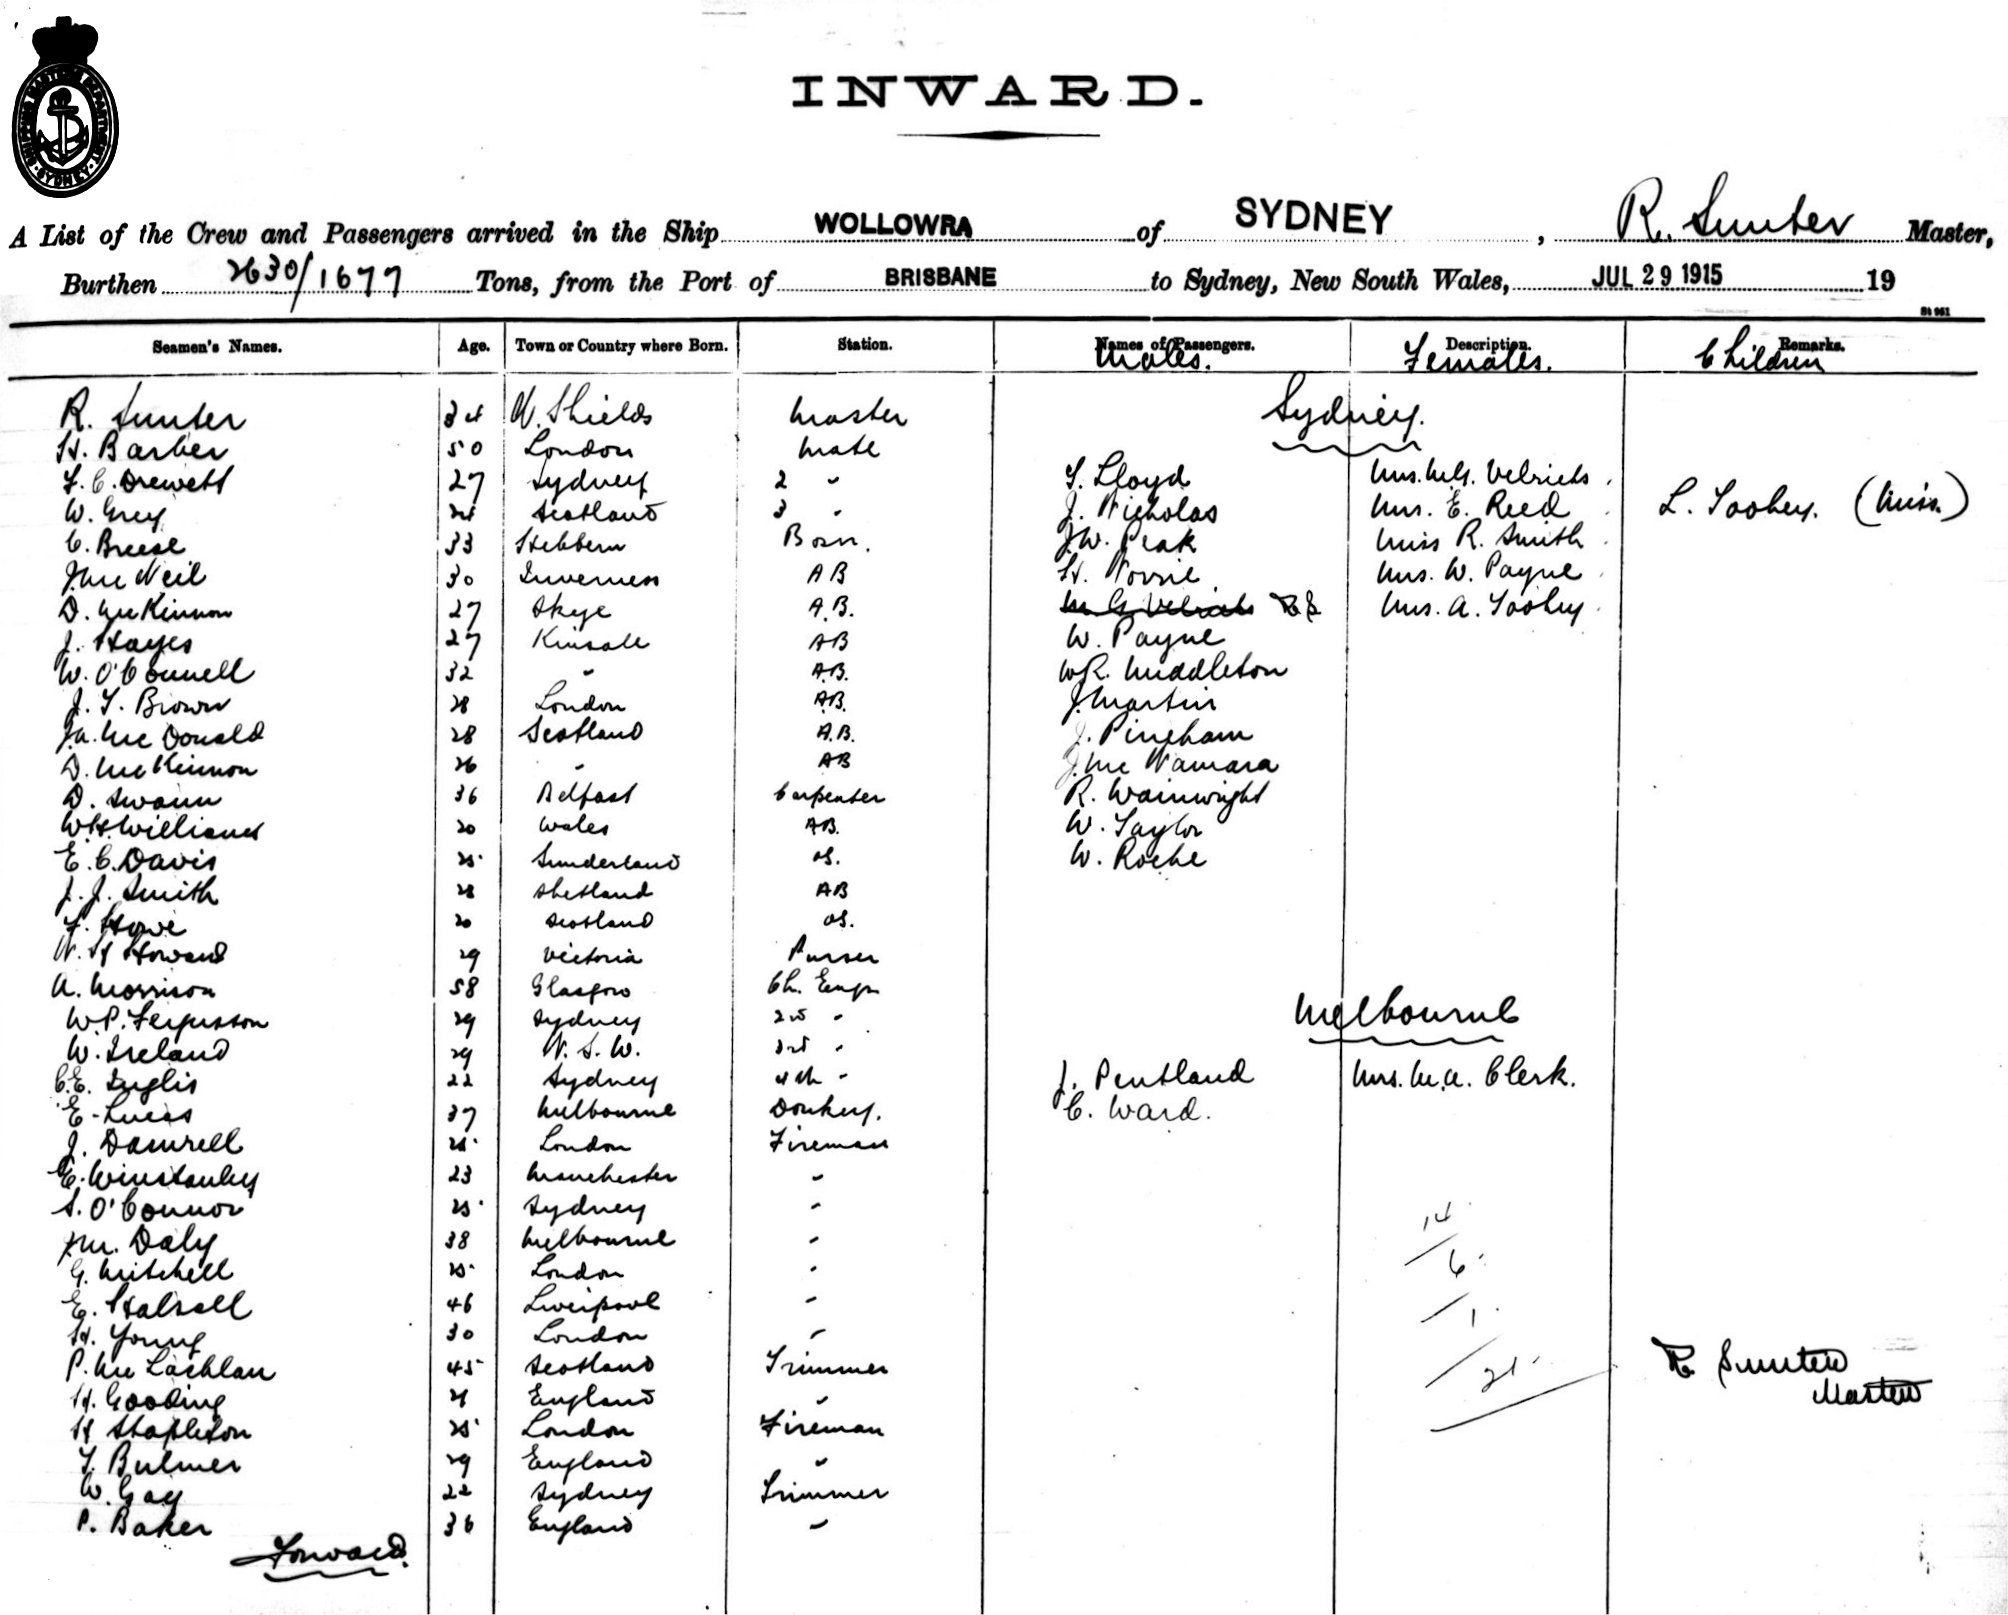 SHIPPING MASTERS DEPARTMENT SYDNEY
INWARD.
A List of the Crew and Passengers arrived in the Ship WOLLOWRA of SYDNEY, R. Sunter Master,
Burthen 2630/1677 Tons, from the Port of BRISBANE to Sydney, New South Wales, JUL 29 1915 19
St 961
Seamen's Names. Age. Town or Country where Born. Station. Names of Passengers. Description. Remarks.
Males. Females. Children
R. Sunter 34 N. Shields Master Sydney.
H. Barber 50 London Mate
F. C. Drewett 27 Sydney 2 " T. Lloyd Mrs. M.G. Velrichs
W. Grey Scotland 3 " J. Nicholas Mrs. E. Reed L. Toohey. (Miss.)
C. Breese 33 Hebburn Bosn. J.W. Peak Miss R. Smith
J. McNeil 30 Inverness AB H. Norrie Mrs. W. Payne
D. McKinnon 27 Skye A.B. M G Velrichs RS Mrs. A. Toohey
J. Hayes 27 Kinsale AB W. Payne
W. O'Connell 32 " A.B. W.R. Middleton
J. T. Brown 28 London A.B. J. Martin
J.A. McDonald 28 Scotland A.B. J. Pingham
D. McKinnon 26 " AB J. McNamara
D. Swann 36 Belfast Carpenter R. Wainwright
W.H. Williams 20 Wales AB. W. Taylor
E. C. Davis 25 Sunderland OS. W. Roche
J. J. Smith 28 Shetland AB
F. Howe 20 Scotland OS.
N. H Howard 29 Victoria Purser
A. Morrison 58 Glasgow Ch. Engr
W.P. Fergusson 29 Sydney 2nd " Melbourne
W. Ireland 29 N. S. W. 3rd "
C.E. Inglis 22 Sydney 4th " J. Pentland Mrs. M.A. Clerk.
E. Lucas 37 Melbourne Donkey. C. Ward.
J. Damrell 25 London Fireman
E. Winstanley 23 Manchester "
S. O'Connor 25 Sydney "
M. Daly 38 Melbourne " 14
G. Mitchell 25 London " 6
E. Halsall 46 Liverpool " 1
H. Young 30 London "
P. McLachlan 45 Scotland Trimmer 21 R Sunter
H. Gooding 21 England " Master
H Stapleton 25 London Fireman
T. Bulmer 29 England "
W. Gay 22 Sydney Trimmer
P. Baker 36 England "
Forward.